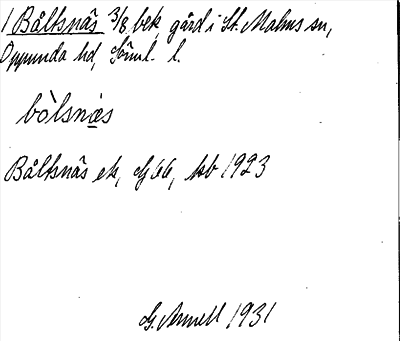 1 Bålsnäs 3/8 bek, gård i St. Malms sn,
Oppunda hd, Söml. l.
bòlsnäs
Bålsnäs ek, G 66, kb 1923
G. Armell 1931